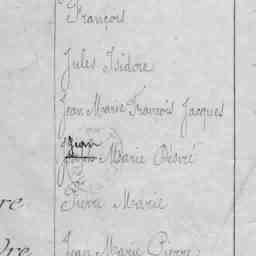 François
Jules Isidore
Jean Marie François Jacques
Jean
Marie Désiré
Pierre Marie
re
Jean Marie Pierre